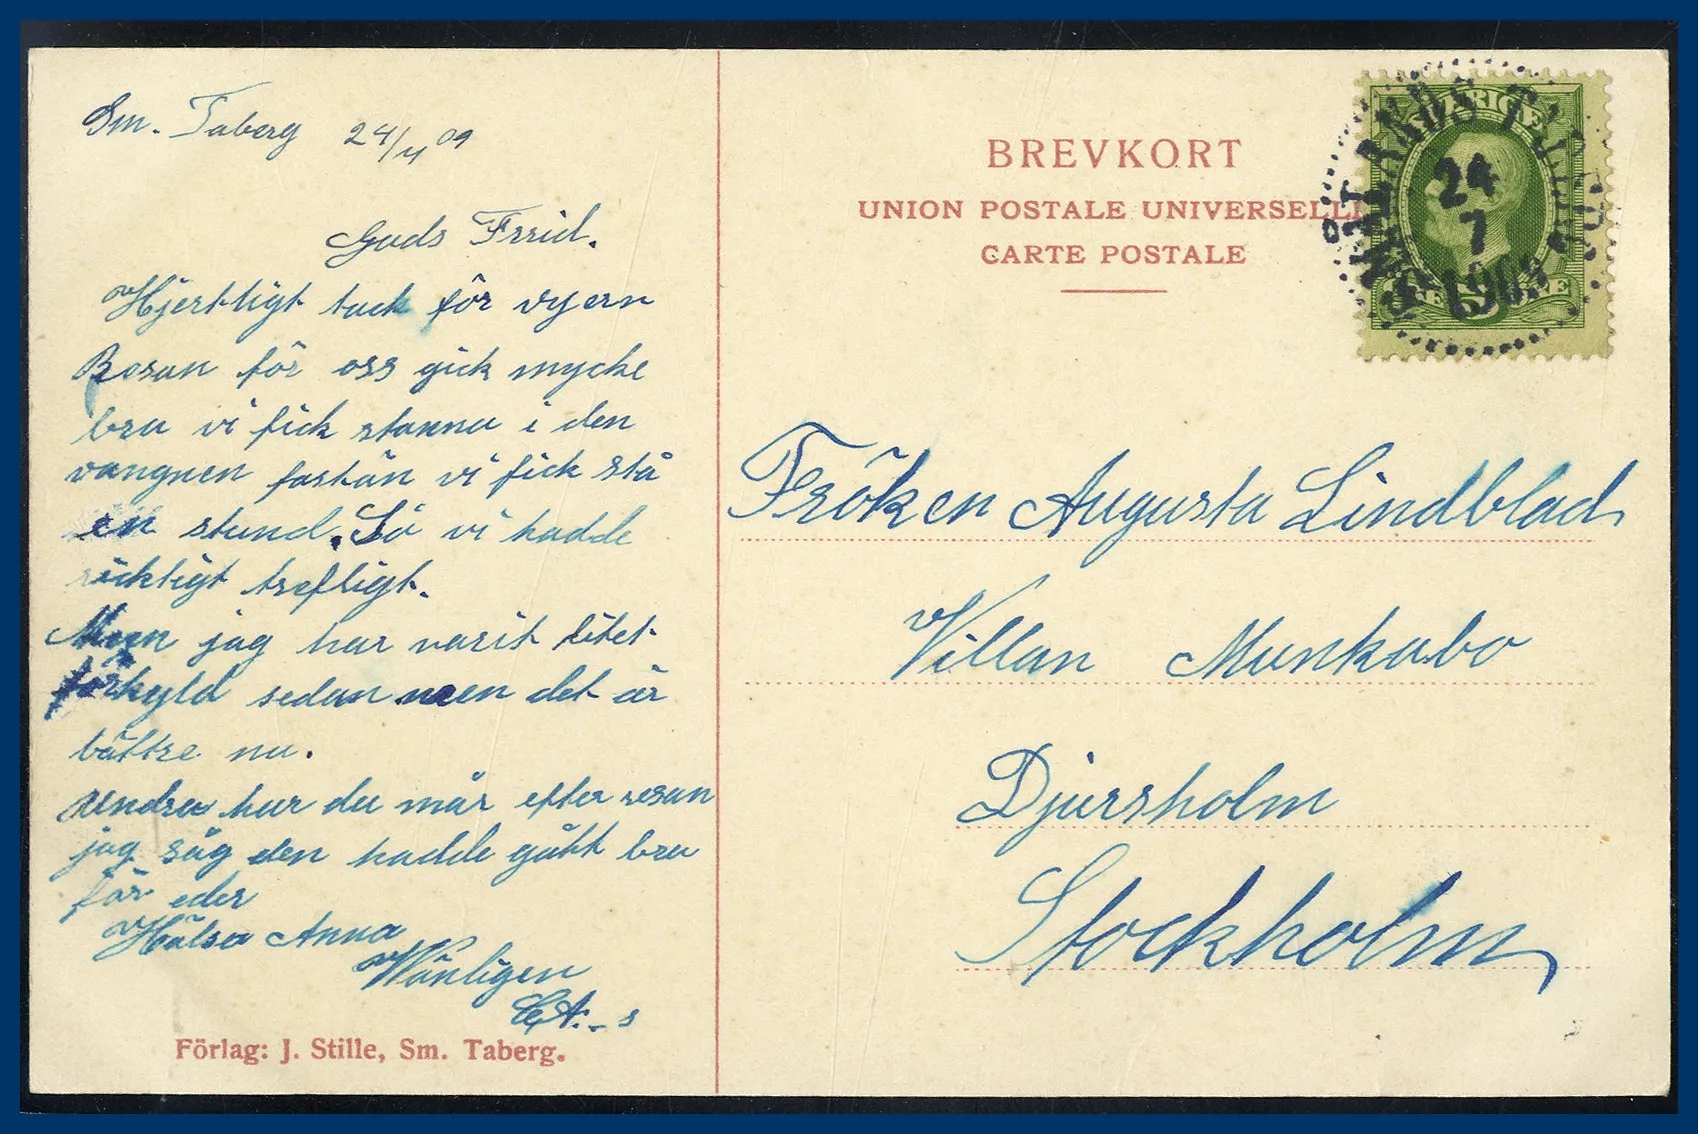 Sm. Taberg 24/7 09
Guds Frrid.
Hjertligt tack för vyern
Resan för oss gick mycke
bra vi fick stanna i den
vangnen fastän vi fick stå
en stund. Så vi hadde
ricktigt trefligt.
Men jag har varit litet
förkyld sedan men det är
bättre nu.
Undra hur du mår efter resan
jag såg den hadde gått bra
för eder
Hälsa Anna
Vänligen
BREVKORT
UNION POSTALE UNIVERSELLE
CARTE POSTALE
SVERIGE
SMÅLANDS TABERG
24
7
Fröken Augusta Lindblad
Villan Munkabo
Djursholm
Stockholm
Förlag: J. Stille, Sm. Taberg.